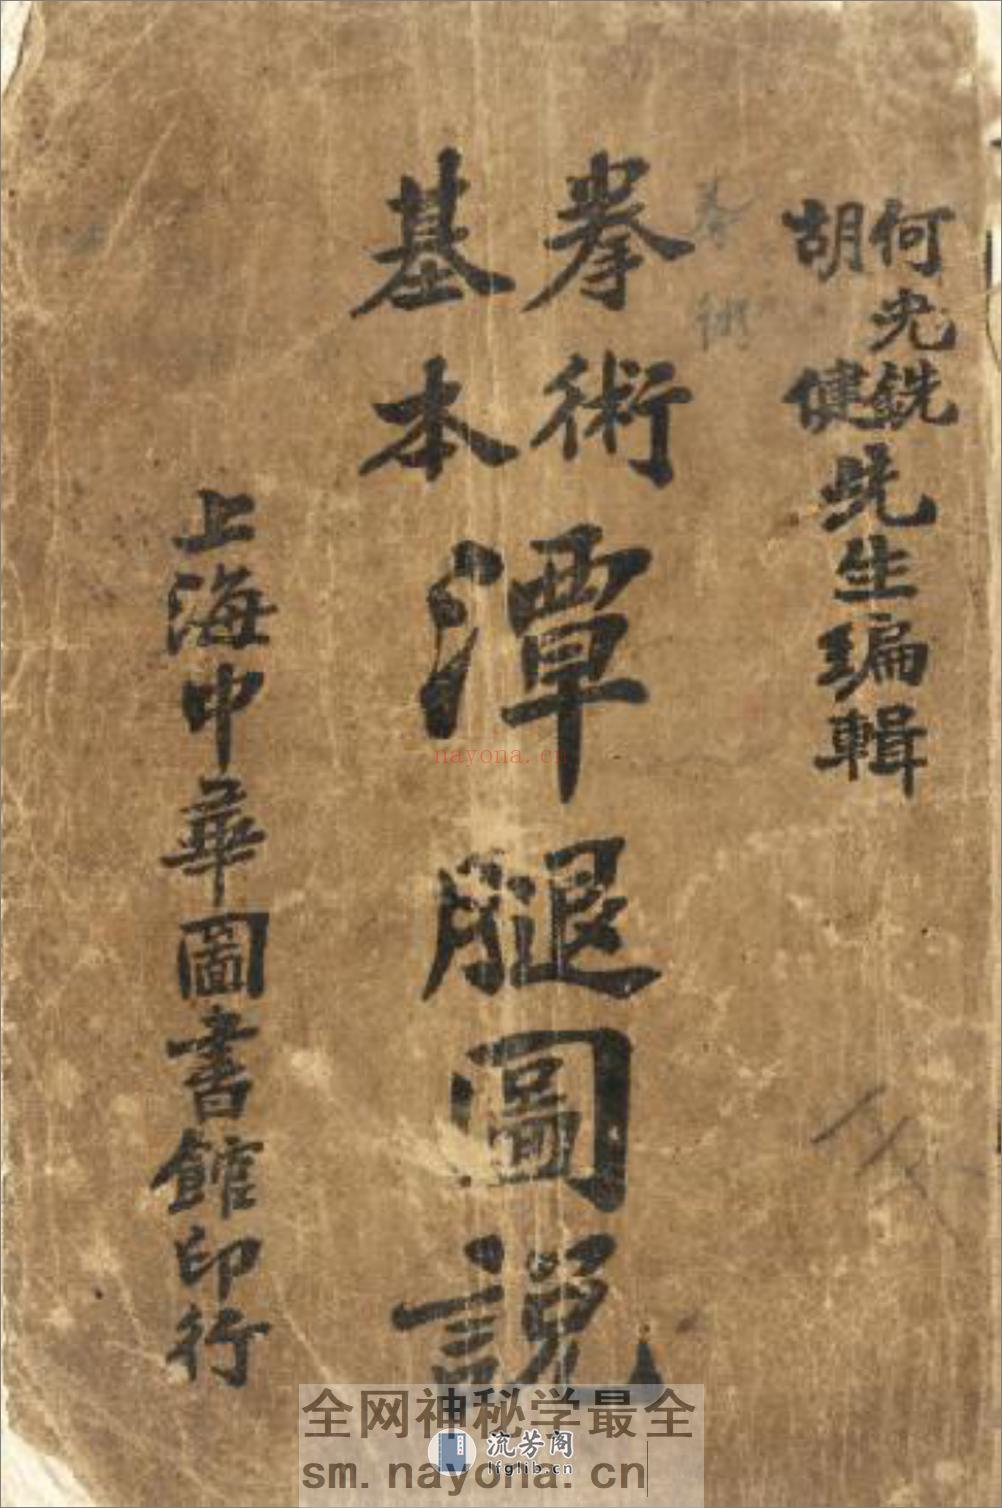 何光銑
胡健
先生編輯
拳術
基本
潭腿圖說
上海中華圖書館印行
拳術
nayona.cn
全网神秘学最全
流芳阁
lfglib.cn
sm.nayona.cn